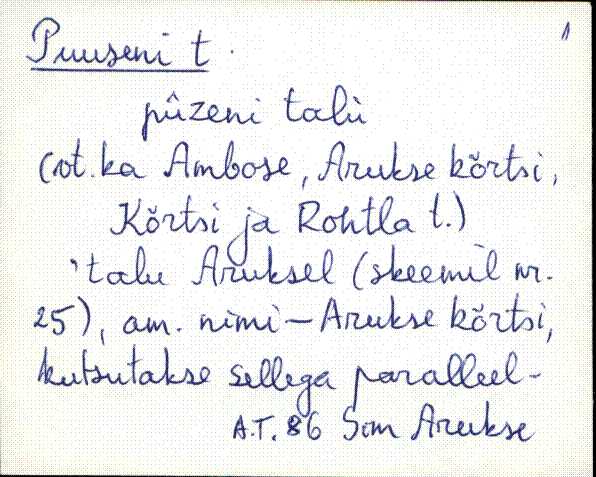 1
Puuseni t.
pûzeni talù
(vt. ka Ambose, Arukse kõrtsi,
Kõrtsi ja Rohtla t.)
'talu Aruksel (skeemil nr.
25), am. nimi – Arukse kõrtsi,
kutsutakse sellega paralleel-
A.T. 86 Sim Arukse